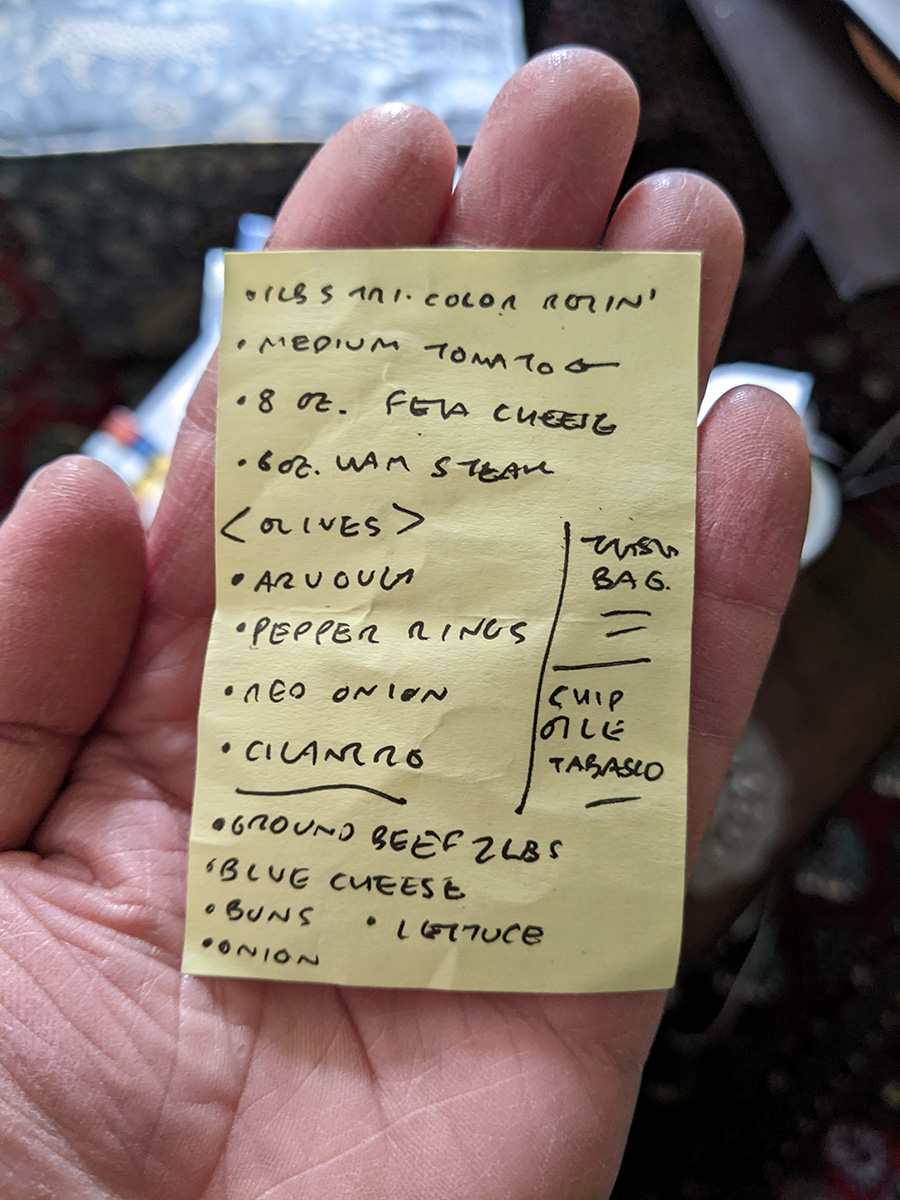 • 1LBS TRI-COLOR ROTIN'
• MEDIUM TOMATO
• 8 OZ. FETA CHEESE
• 6 OZ. HAM STEAK
< OLIVES >
• ARUGULA
• PEPPER RINGS
• RED ONION
• CILANTRO
• GROUND BEEF 2 LBS
• BLUE CHEESE
• BUNS • LETTUCE
• ONION
BAG.
CHIP
OTLE
TABASCO